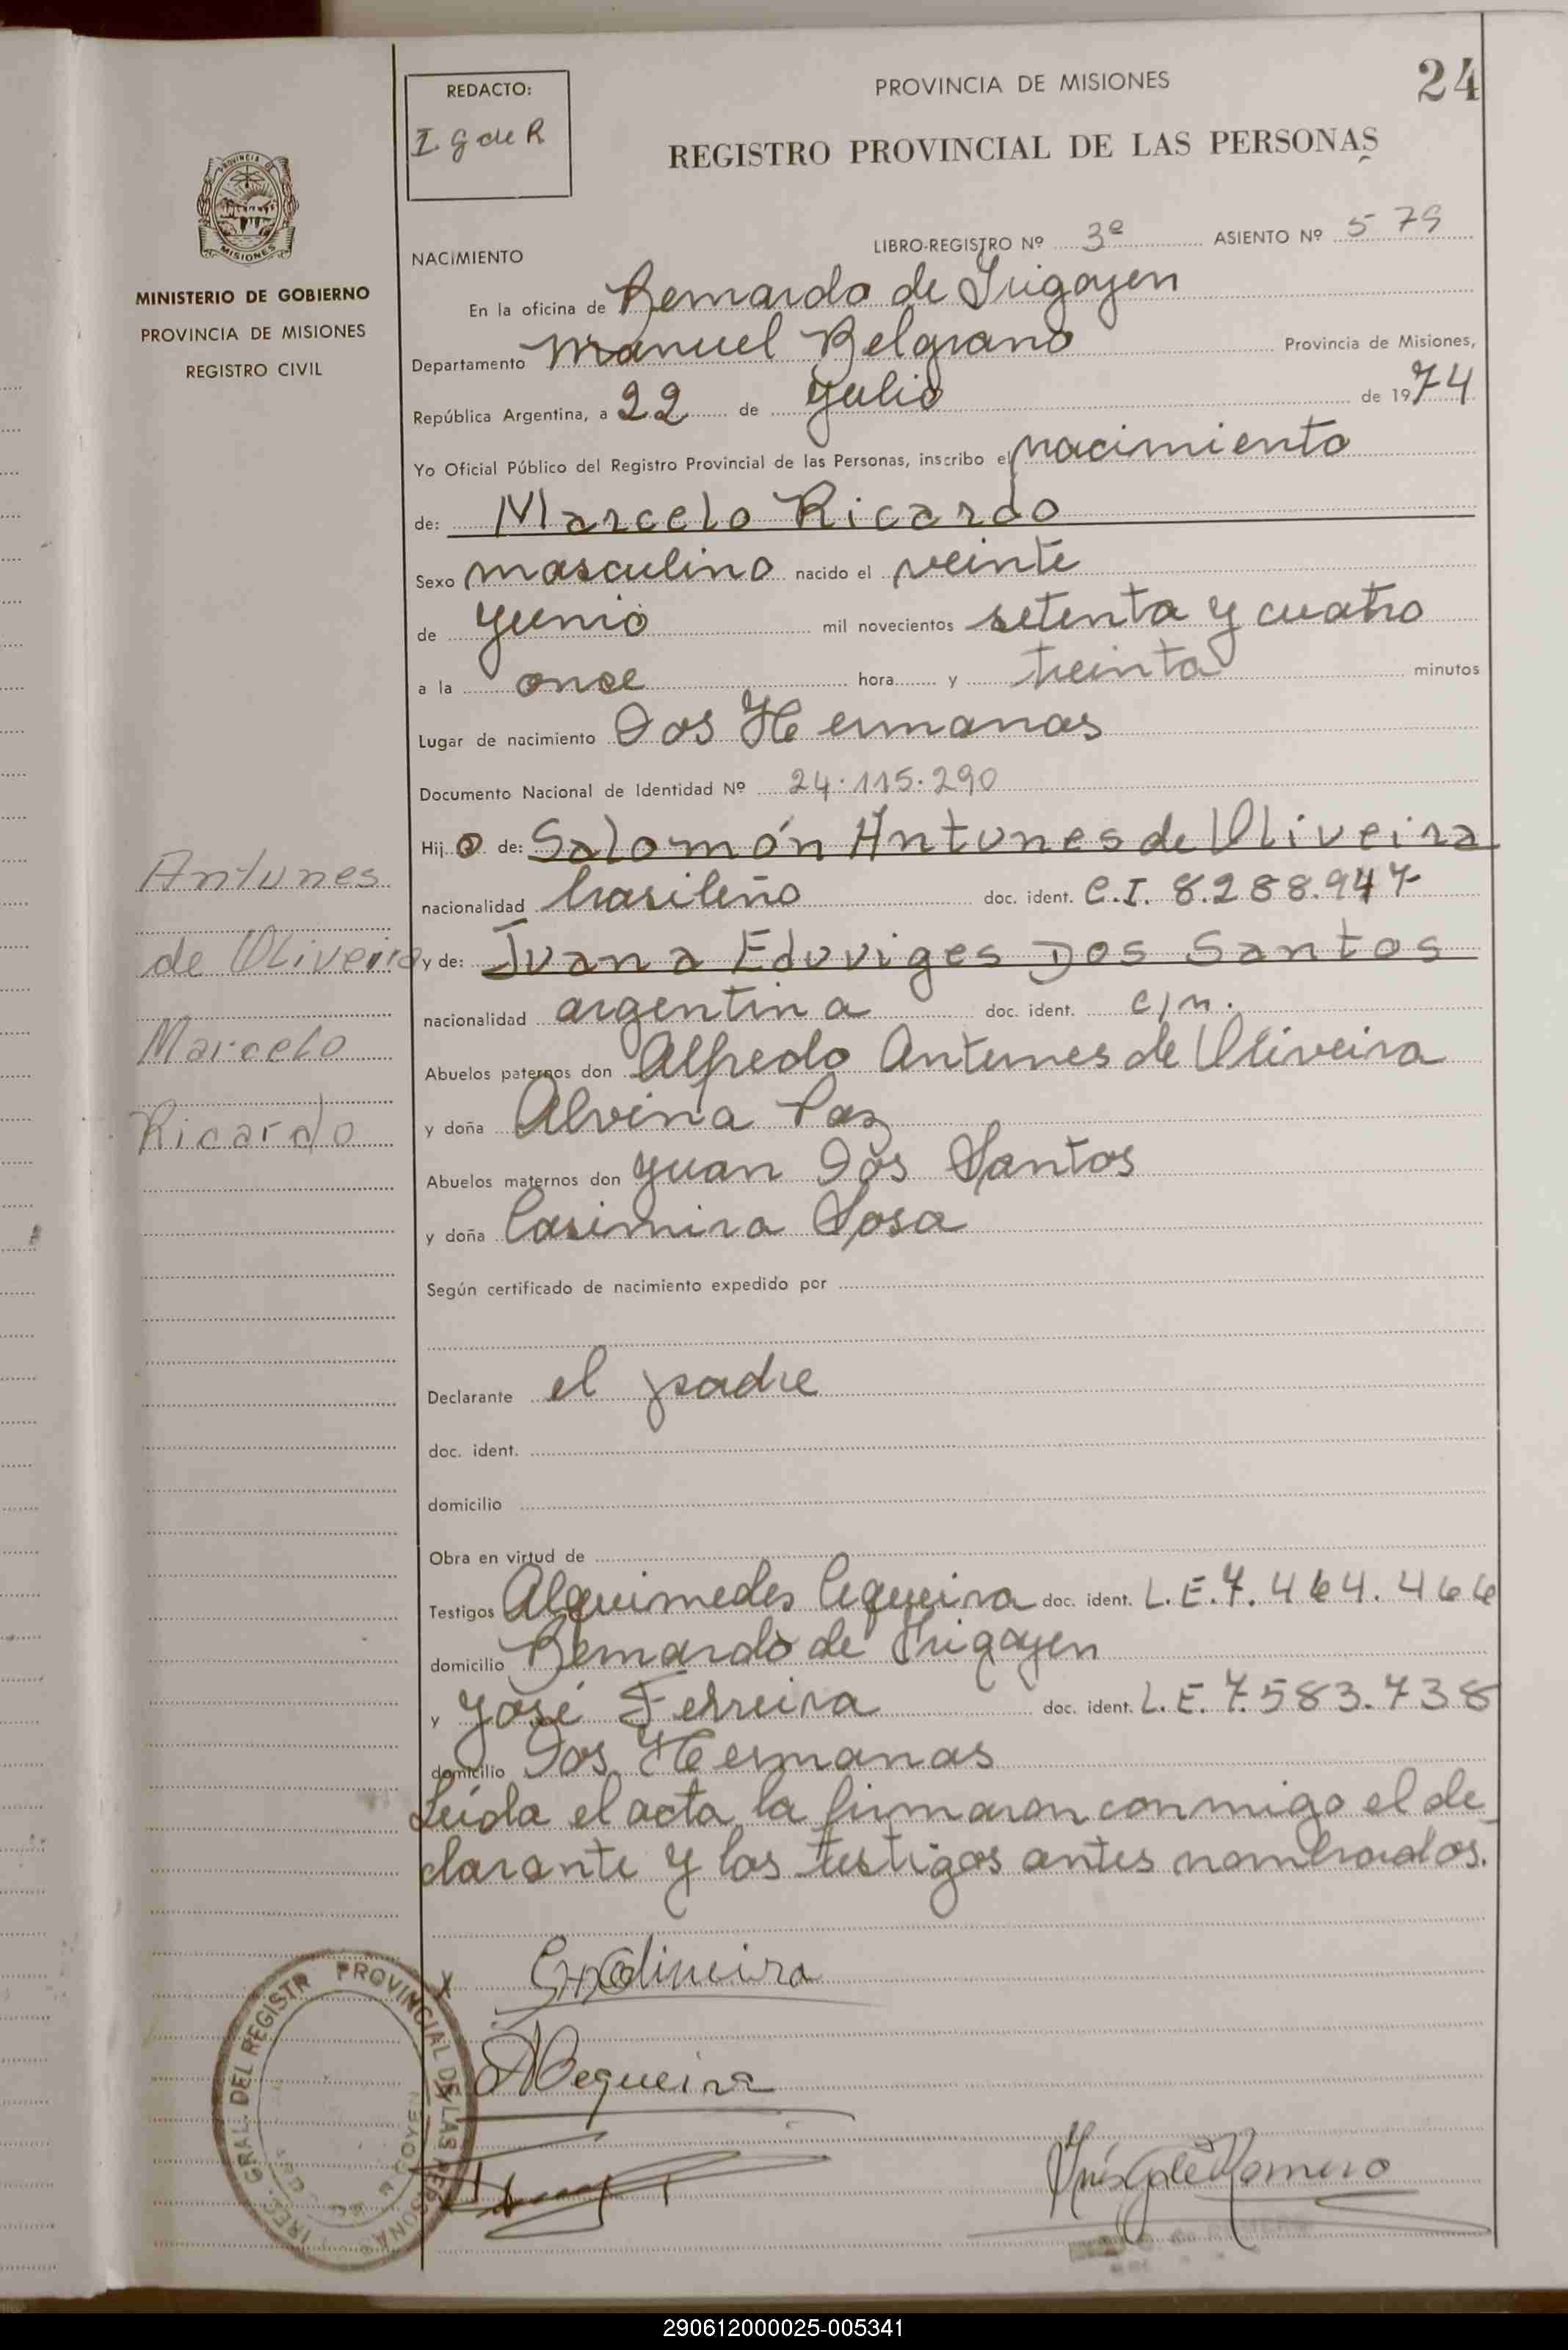 24
PROVINCIA DE MISIONES
REGISTRO PROVINCIAL DE LAS PERSONAS
REDACTO:
I G de R
PROVINCIA DE
MISIONES
MINISTERIO DE GOBIERNO
PROVINCIA DE MISIONES
REGISTRO CIVIL
LIBRO-REGISTRO Nº 3º ASIENTO Nº 579
NACIMIENTO
En la oficina de Bernardo de Irigoyen
Departamento Manuel Belgrano Provincia de Misiones,
República Argentina, a 22 de Julio de 1974
Yo Oficial Público del Registro Provincial de las Personas, inscribo el nacimiento
de: Marcelo Ricardo
Sexo masculino nacido el veinte
de Junio mil novecientos setenta y cuatro
a la once hora y treinta minutos
Lugar de nacimiento Dos Hermanas
Documento Nacional de Identidad Nº 24.115.290
Hijo de: Salomón Antunes de Oliveira
nacionalidad brasileño doc. ident. C.I. 8.288.947
y de: Juana Eduviges Dos Santos
nacionalidad argentina doc. ident. c/n.
Abuelos paternos don Alfredo Antunes de Oliveira
y doña Alvina Paz
Abuelos maternos don Juan Dos Santos
y doña Casimira Sosa
Antunes
de Oliveira
Marcelo
Ricardo
Según certificado de nacimiento expedido por
Declarante el padre
doc. ident.
domicilio
Obra en virtud de
Testigos Alquimedes Cequeira doc. ident. L.E. 7.464.466
domicilio Bernardo de Irigoyen
y José Ferreira doc. ident. L.E. 7.583.738
domicilio Dos Hermanas
Leída el acta, la firmaron conmigo el de-
clarante y los testigos antes nombrados.
Oliveira
ACequeira
Inés G de Romero
GRAL. DEL REGISTR PROVINCIAL DE LAS PERSONAS
290612000025-005341